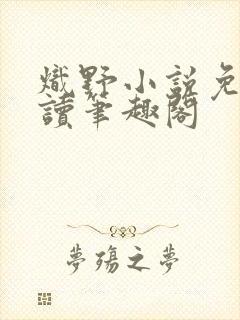 熾野小説免
讀筆趣閣
夢殤之夢